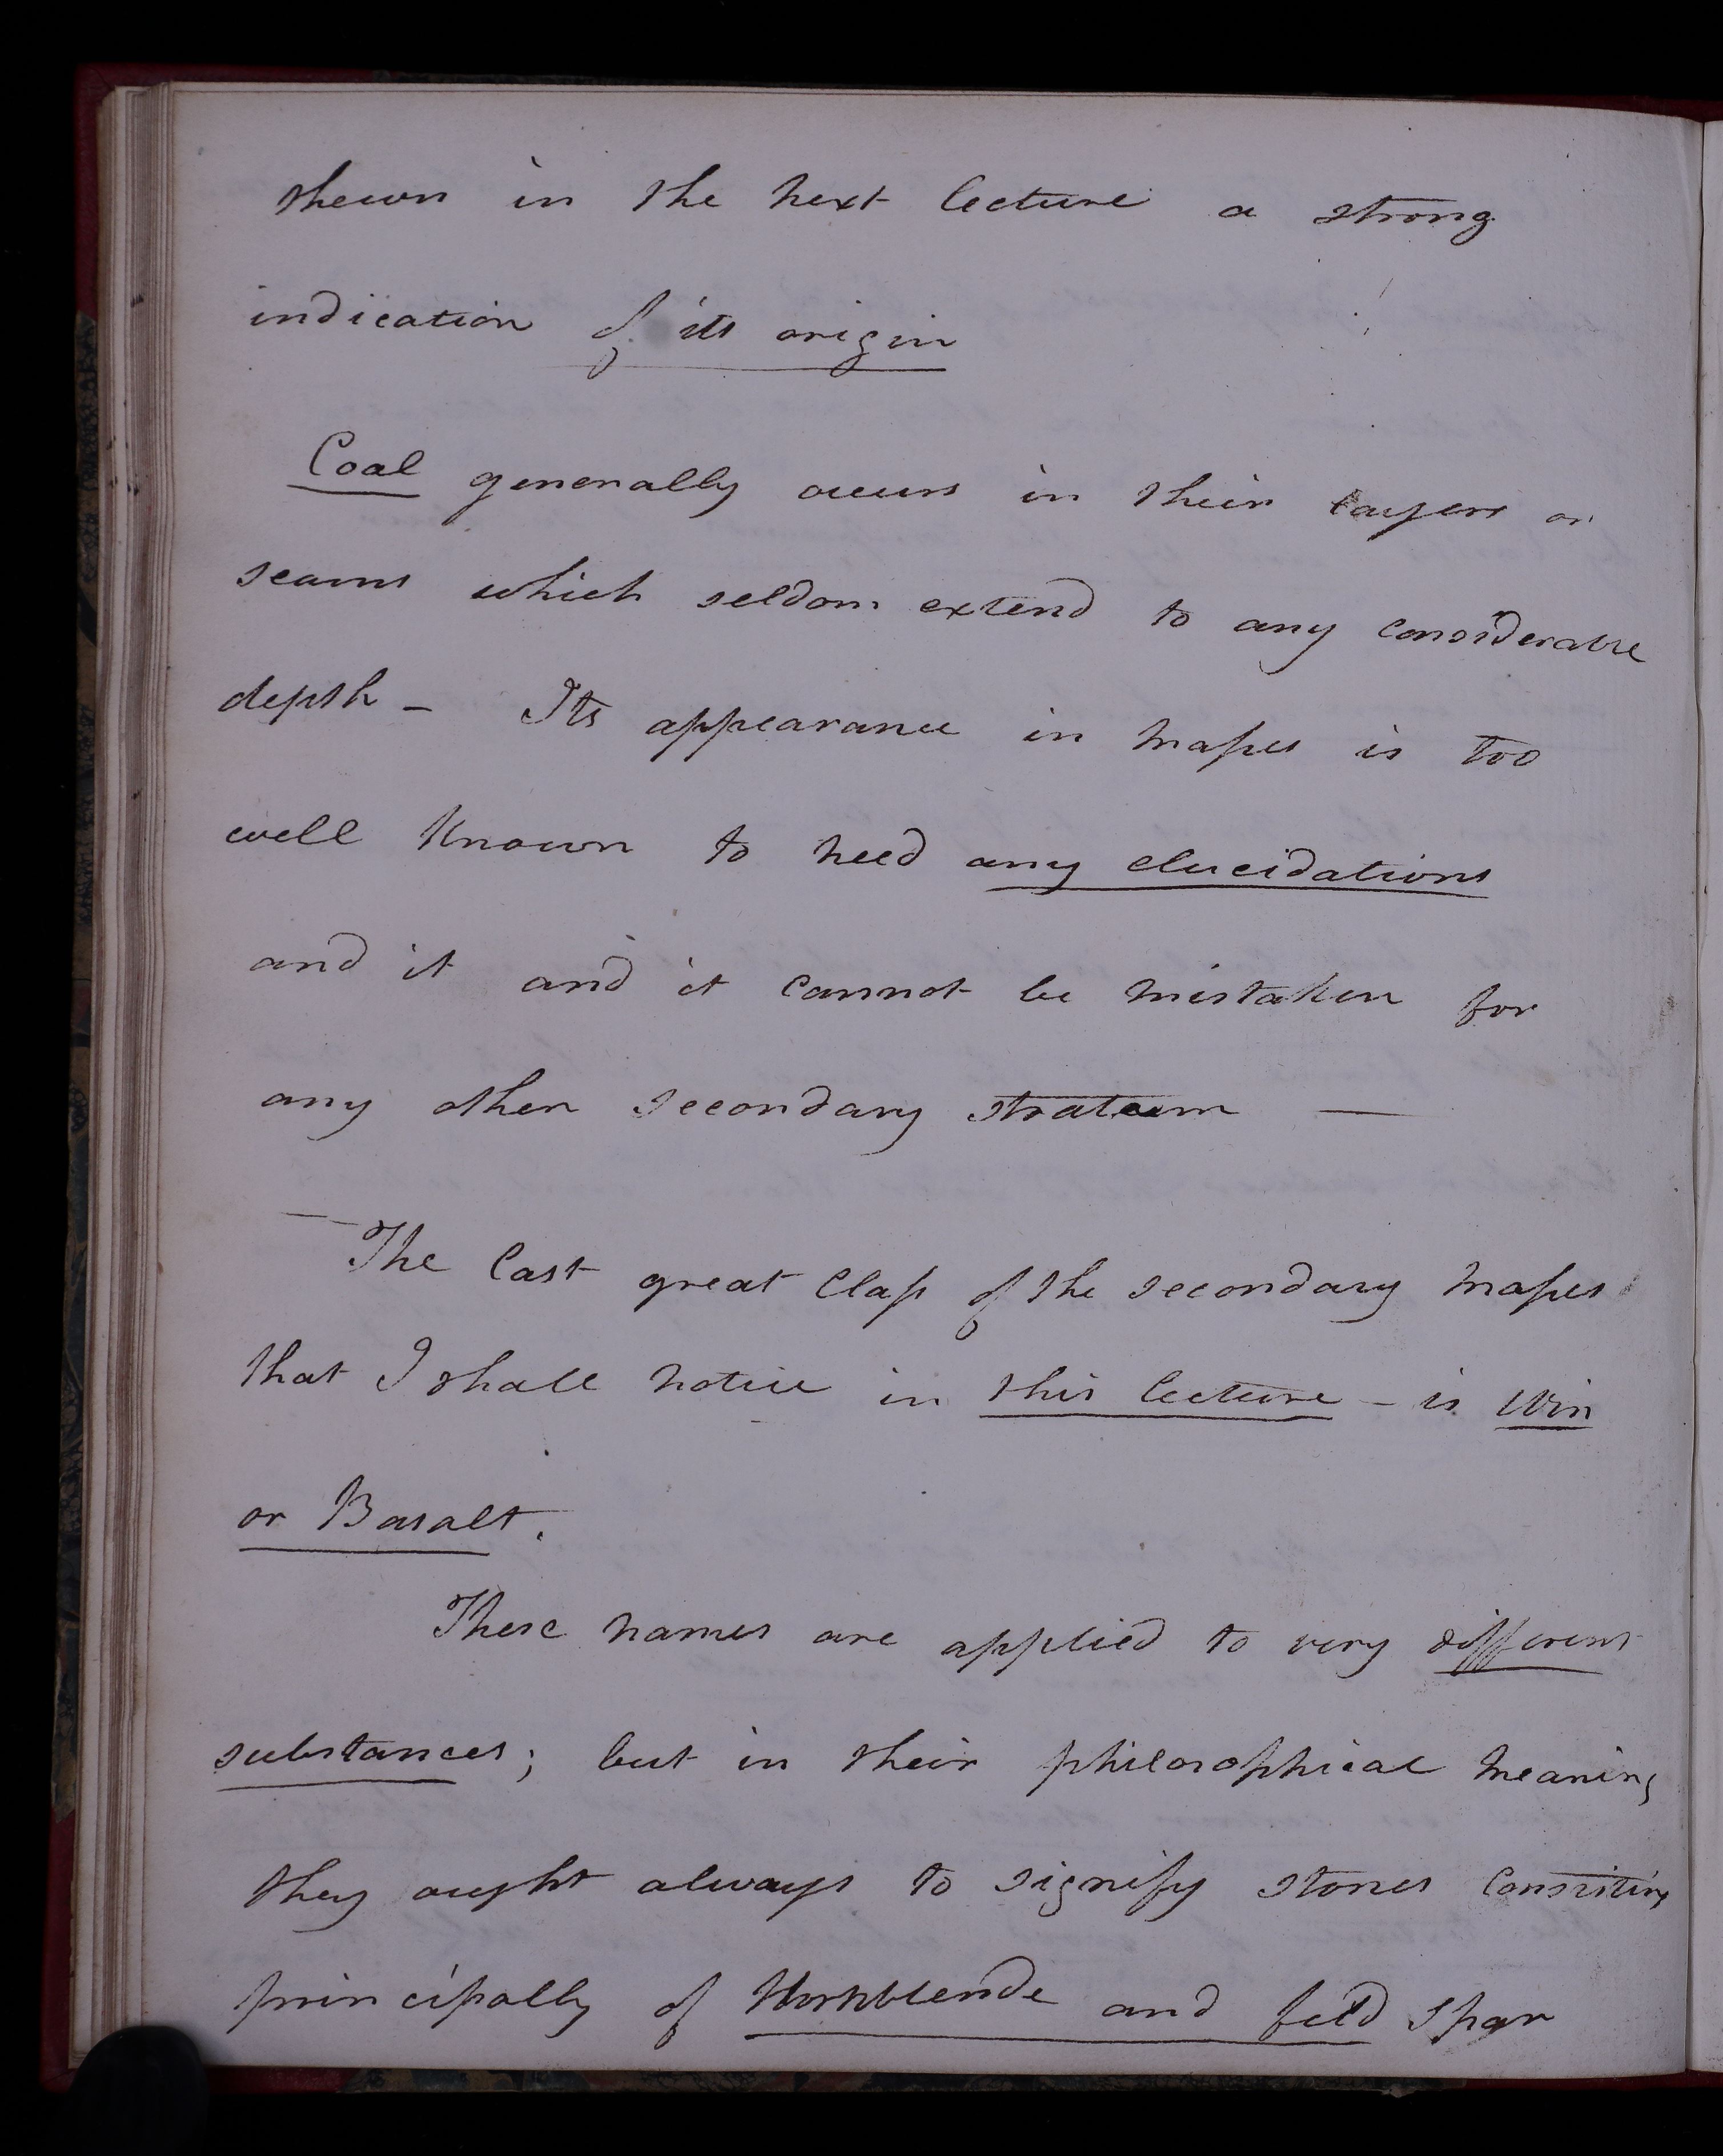 shewn in the next lecture a strong
indication of its origin
Coal generally occurs in their layers or
seams which seldom extend to any considerable
depth - Its appearance in masses is too
well known to need any elucidations
and it and it cannot be mistaken for
any other secondary stratum —
— The last great class of the secondary masses
that I shall notice in this lecture - is Win
or Basalt.
These names are applied to very different
substances; but in their philosophical meaning
they ought always to signify stones consisting
principally of Hornblende and feld spar